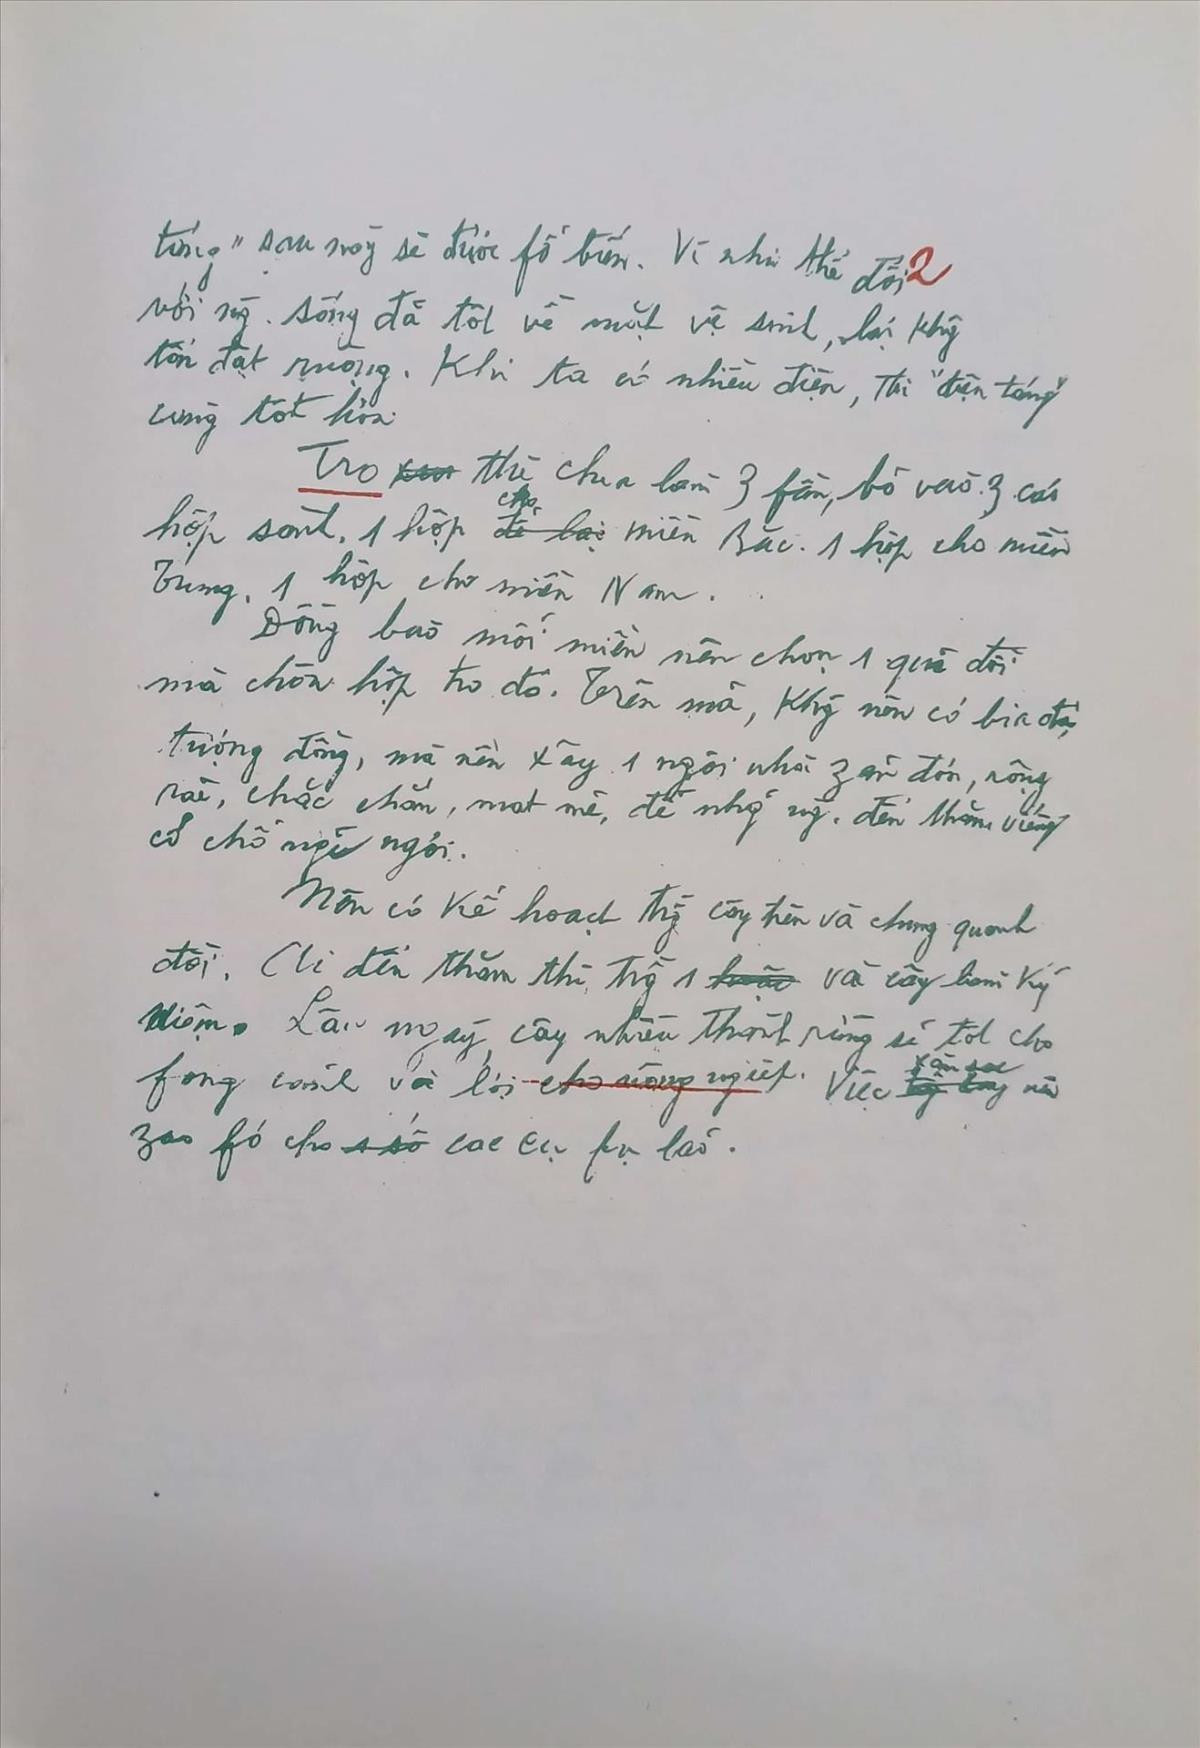 táng" sau này sẽ được fổ biến. Vì như thế đối 2
với ng. sống đã tốt về mặt vệ sinh, lại khg
tốn đất ruộng. Khi ta có nhiều điện, thì "điện táng"
càng tốt hơn.
Tro xxx thì chia làm 3 fần, bỏ vào 3 cái
hộp sành. 1 hộp để lại cho miền Bắc. 1 hộp cho miền
Trung. 1 hộp cho miền Nam.
Đồng bào mỗi miền nên chọn 1 quả đồi
mà chôn hộp tro đó. Trên mả, khg nên có bia đá,
tượng đồng, mà nên xây 1 ngôi nhà zản đơn, rộng
rãi, chắc chắn, mát mẻ, để nhg ng. đến thăm viếng
có chỗ nghỉ ngơi.
Nên có kế hoạch trg cây trên và chung quanh
đồi. Ai đến thăm thì trg 1 hoặc vài cây làm kỷ
niệm. Lâu ngày, cây nhiều thành rừng sẽ tốt cho
fong cảnh và lợi cho nông ngiệp. Việc săn sóc nên
zao fó cho 1 số các cụ fụ lão.